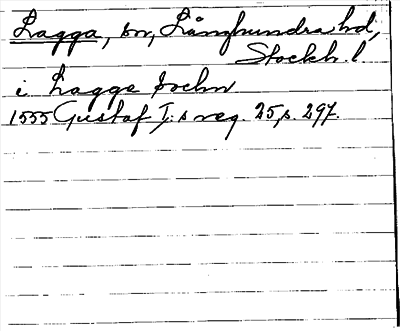 Lagga, sn, Långhundra hd,
Stockh. l.
i Lagge sochn
1555 Gustaf I:s reg. 25, s. 297.